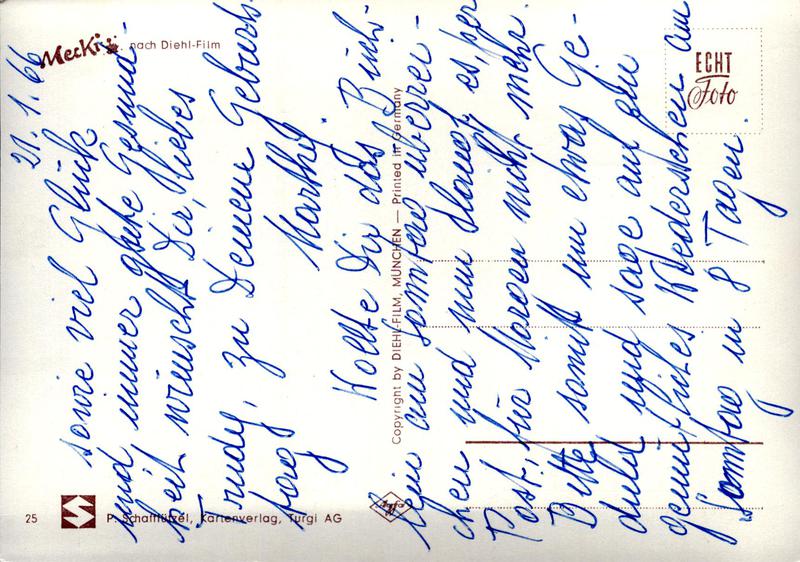 Mecki nach Diehl-Film
ECHT
Foto
21.1.66
sowie viel Glück
und immer gute Gesund-
heit wünscht Dir, liebes
Trudy, zu Deinem Geburts-
tag Marthy.
Wollte Dir das Büch-
lein am Samstag überrei-
chen und nun es, per
Post für Morgen nicht mehr.
Bitte somit um etwas Ge-
duld und sage auf ein
gemütliches Wiedersehen am
Samstag in 8 Tagen.
Copyright by DIEHL-FILM, MÜNCHEN — Printed in Germany
25
P. Schafflützel, Kartenverlag, Turgi AG
Agfa